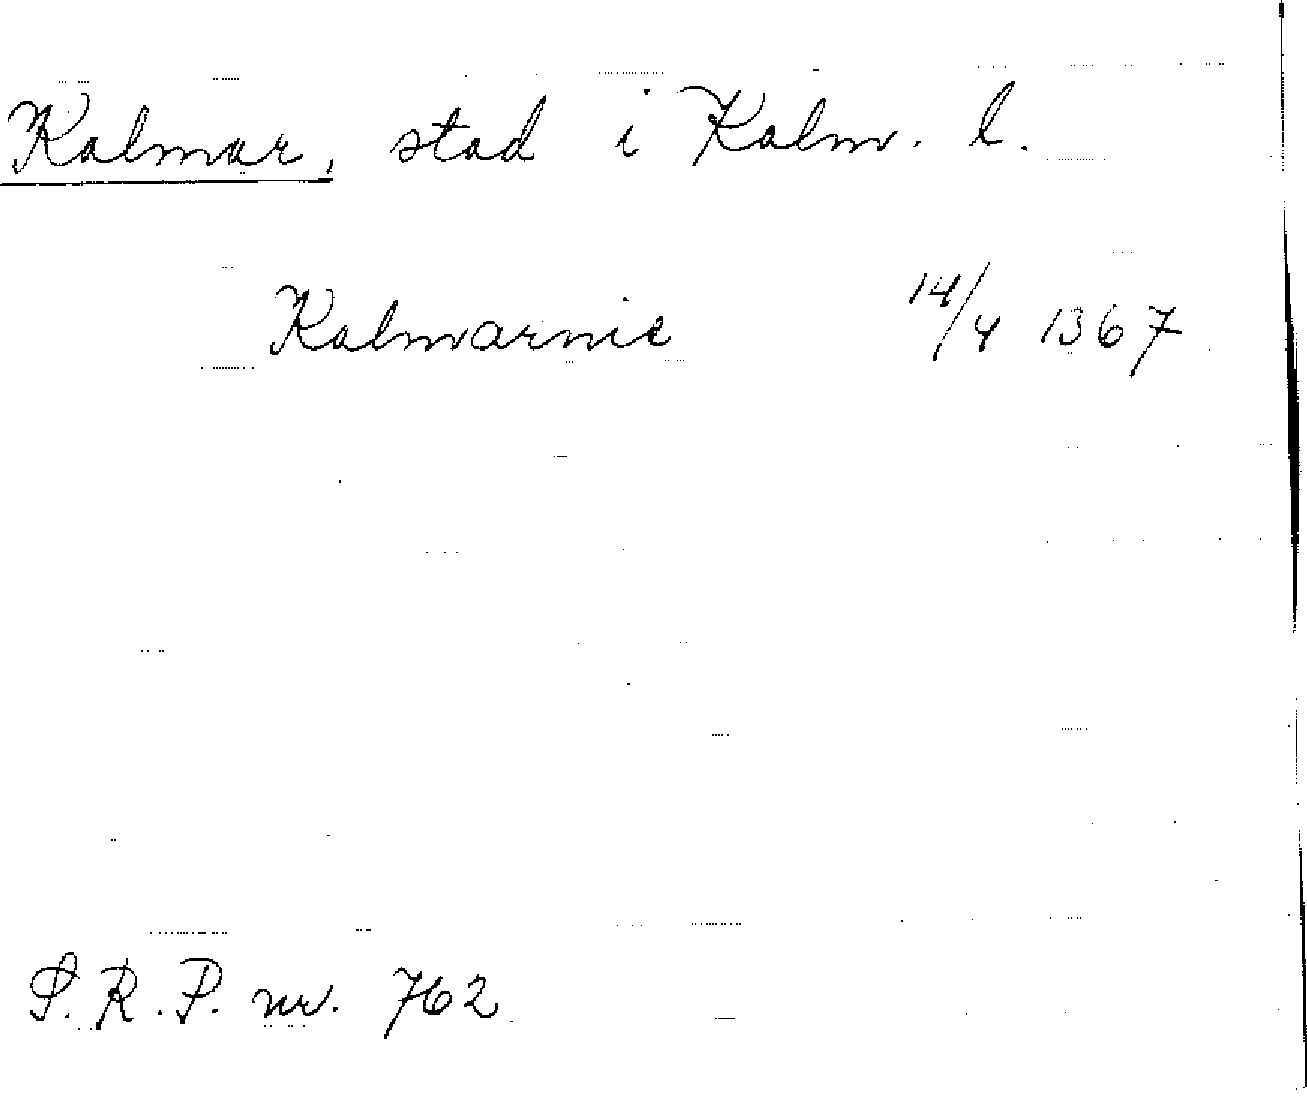 Kalmar, stad i Kalm. l.
Kalmarnie 14/4 1367
S.R.P. nr. 762